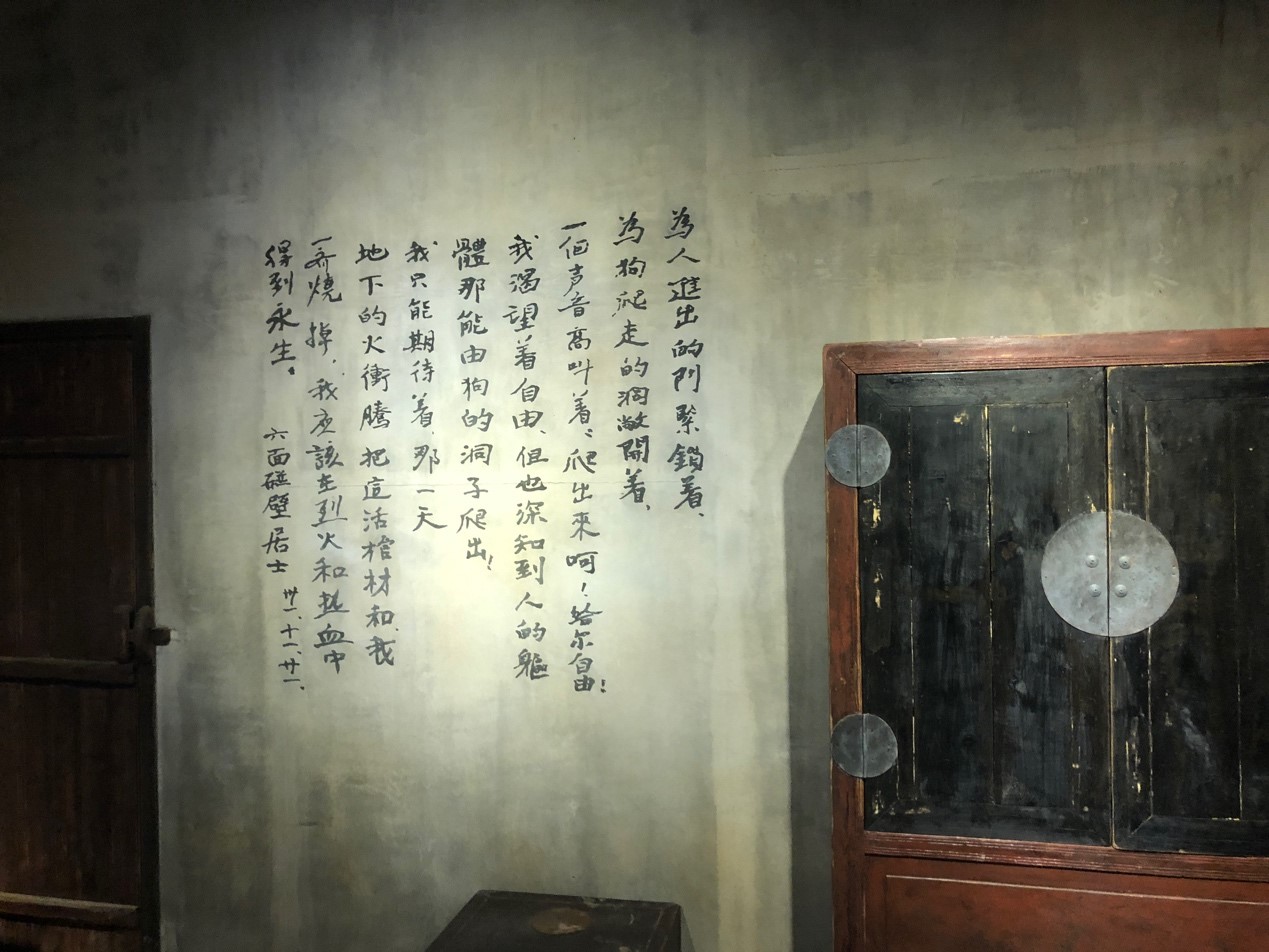 為人進出的門緊鎖着、
為狗爬走的洞敞開着、
一個声音高叫着：爬出來呵！给尔自由！
我渴望着自由、但也深知到人的軀
體那能由狗的洞子爬出！
我只能期待着、那一天
地下的火衝騰把這活棺材和我
一齐燒掉，我应該在烈火和热血中
得到永生。
六面碰壁居士
卅一、十一、廿一、